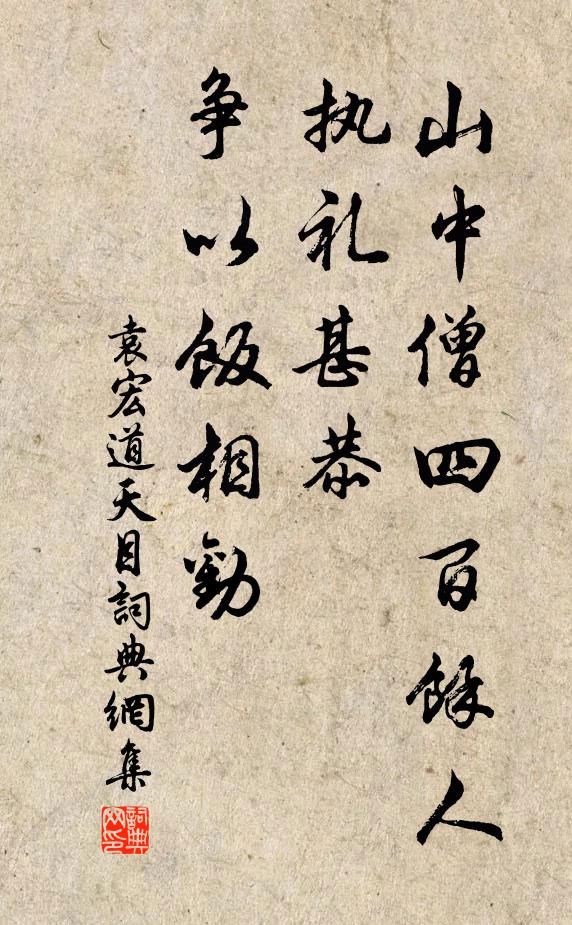 山中僧四百餘人
执礼甚恭
争以飯相勸
袁宏道天目詞典網集
詞典网印